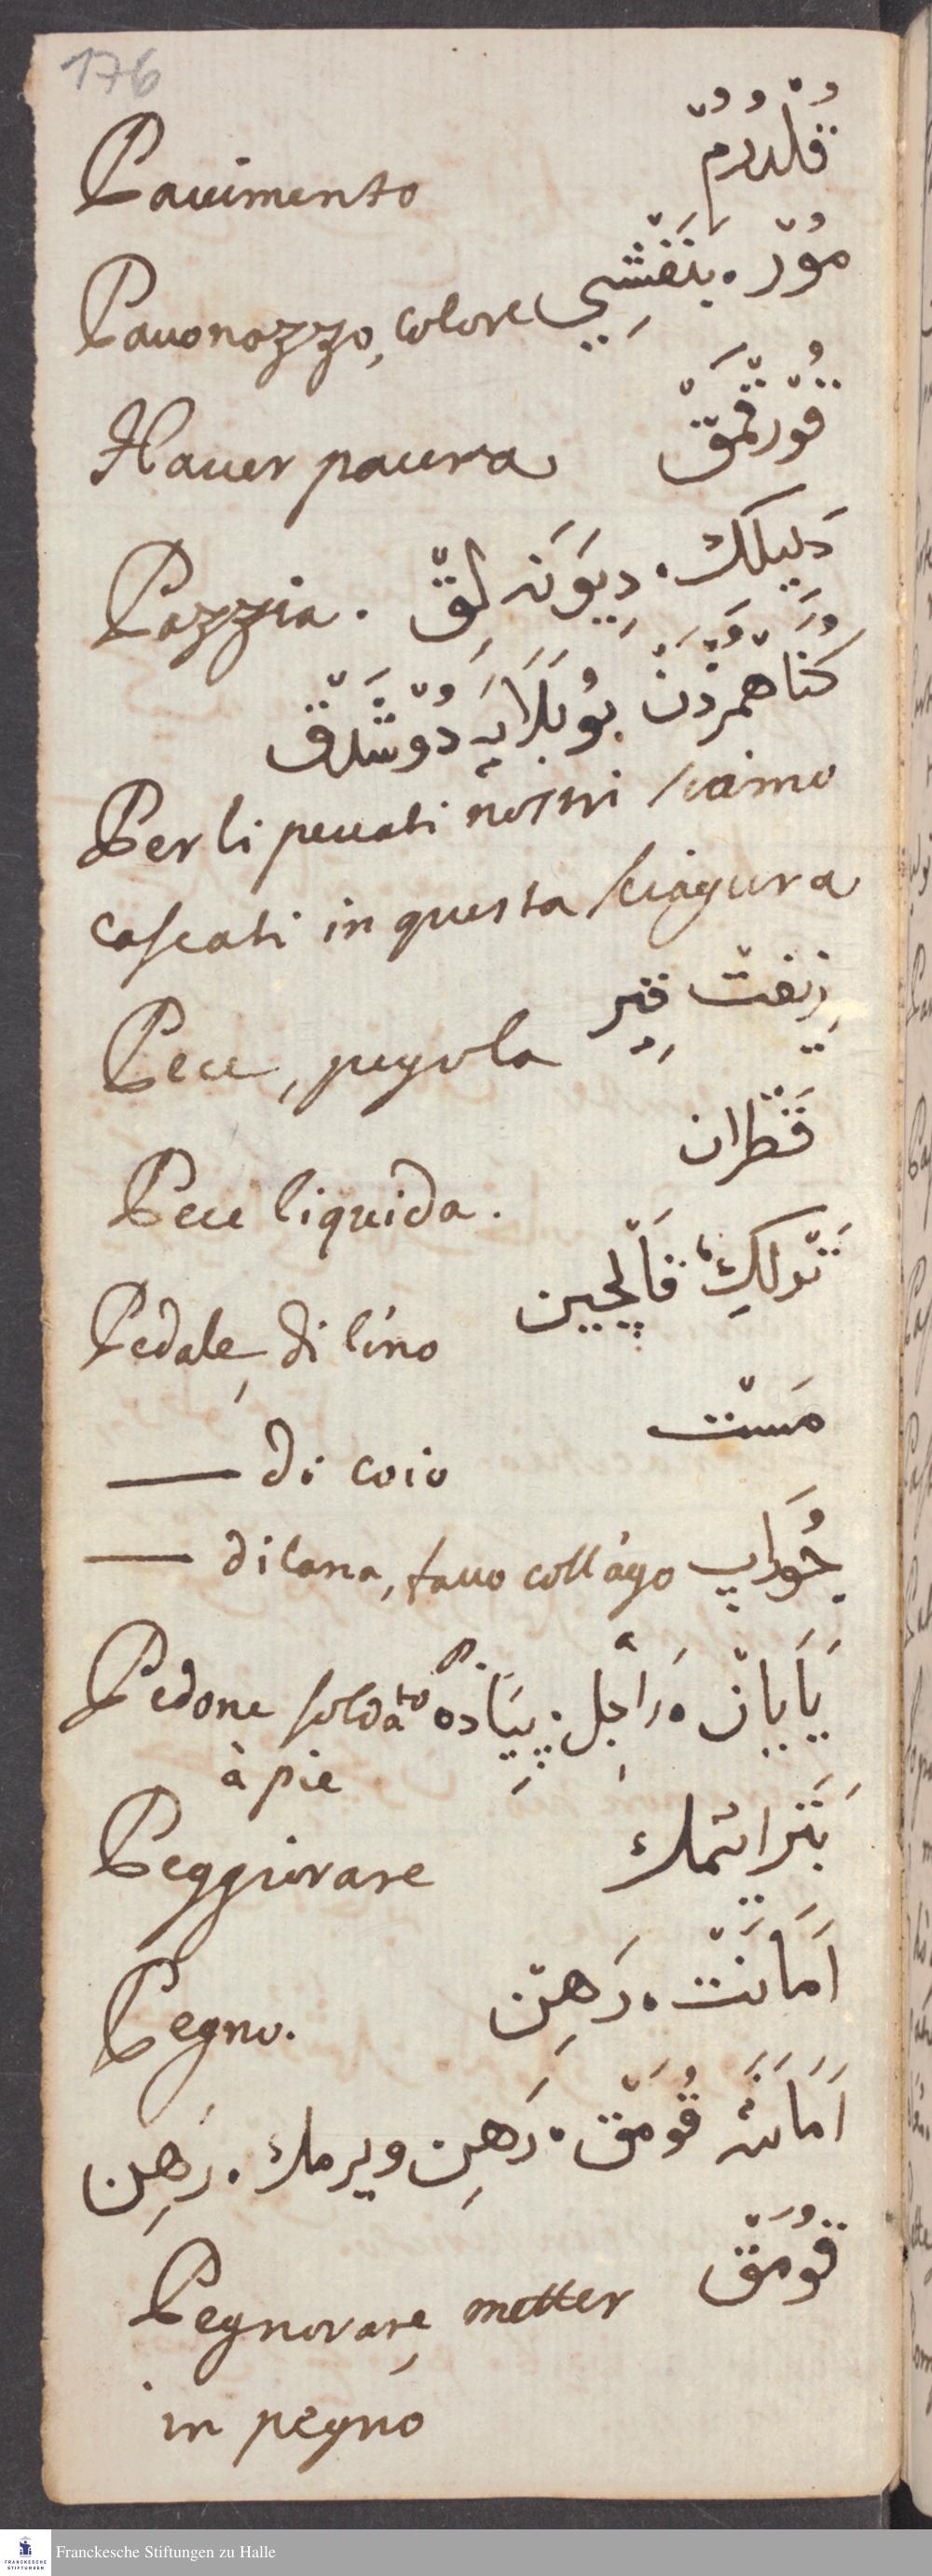 176
Pauimento قُلْدُرُمْ
Pauonazzo, colore مُوْر . بَنَفْشِي
Hauer paura قُوْرقْمَقْ
Pazzia . دَلِيلكْ . دِيوَنَه لِقْ
كُنَاهْمُزْدَنْ بُو بَلَايَه دُوْشْدَقْ
Per li peccati nostri siamo
cascati in questa sciagura
Pece, pegola زِيفتْ قِير
Pece liquida . قَطْرَان
Pedale, di lino تَرْلِكْ قَالْچِين
— di coio مَسْتْ
— di lana, fatto coll'ago جُورَاپ
Pedone soldato يَايَانْ . رَاجِل . P. پِيَاده
à pie
Peggiorare بَتَر ايتمك
Pegno. اَمَانَتْ . رَهِنْ
اَمَانَة قُومَقْ . رَهِن ويرمك . رَهِن
قُومَقْ
Pegnorare, metter
in pegno
Franckesche Stiftungen zu Halle